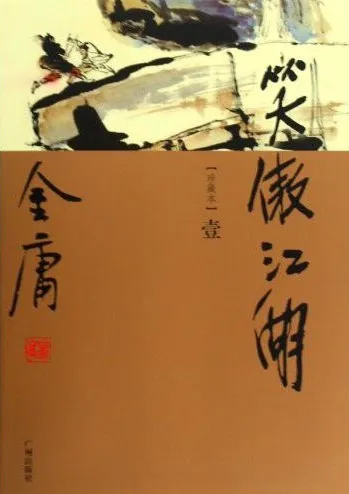 笑傲江湖
【珍藏本】壹
金庸
广州出版社